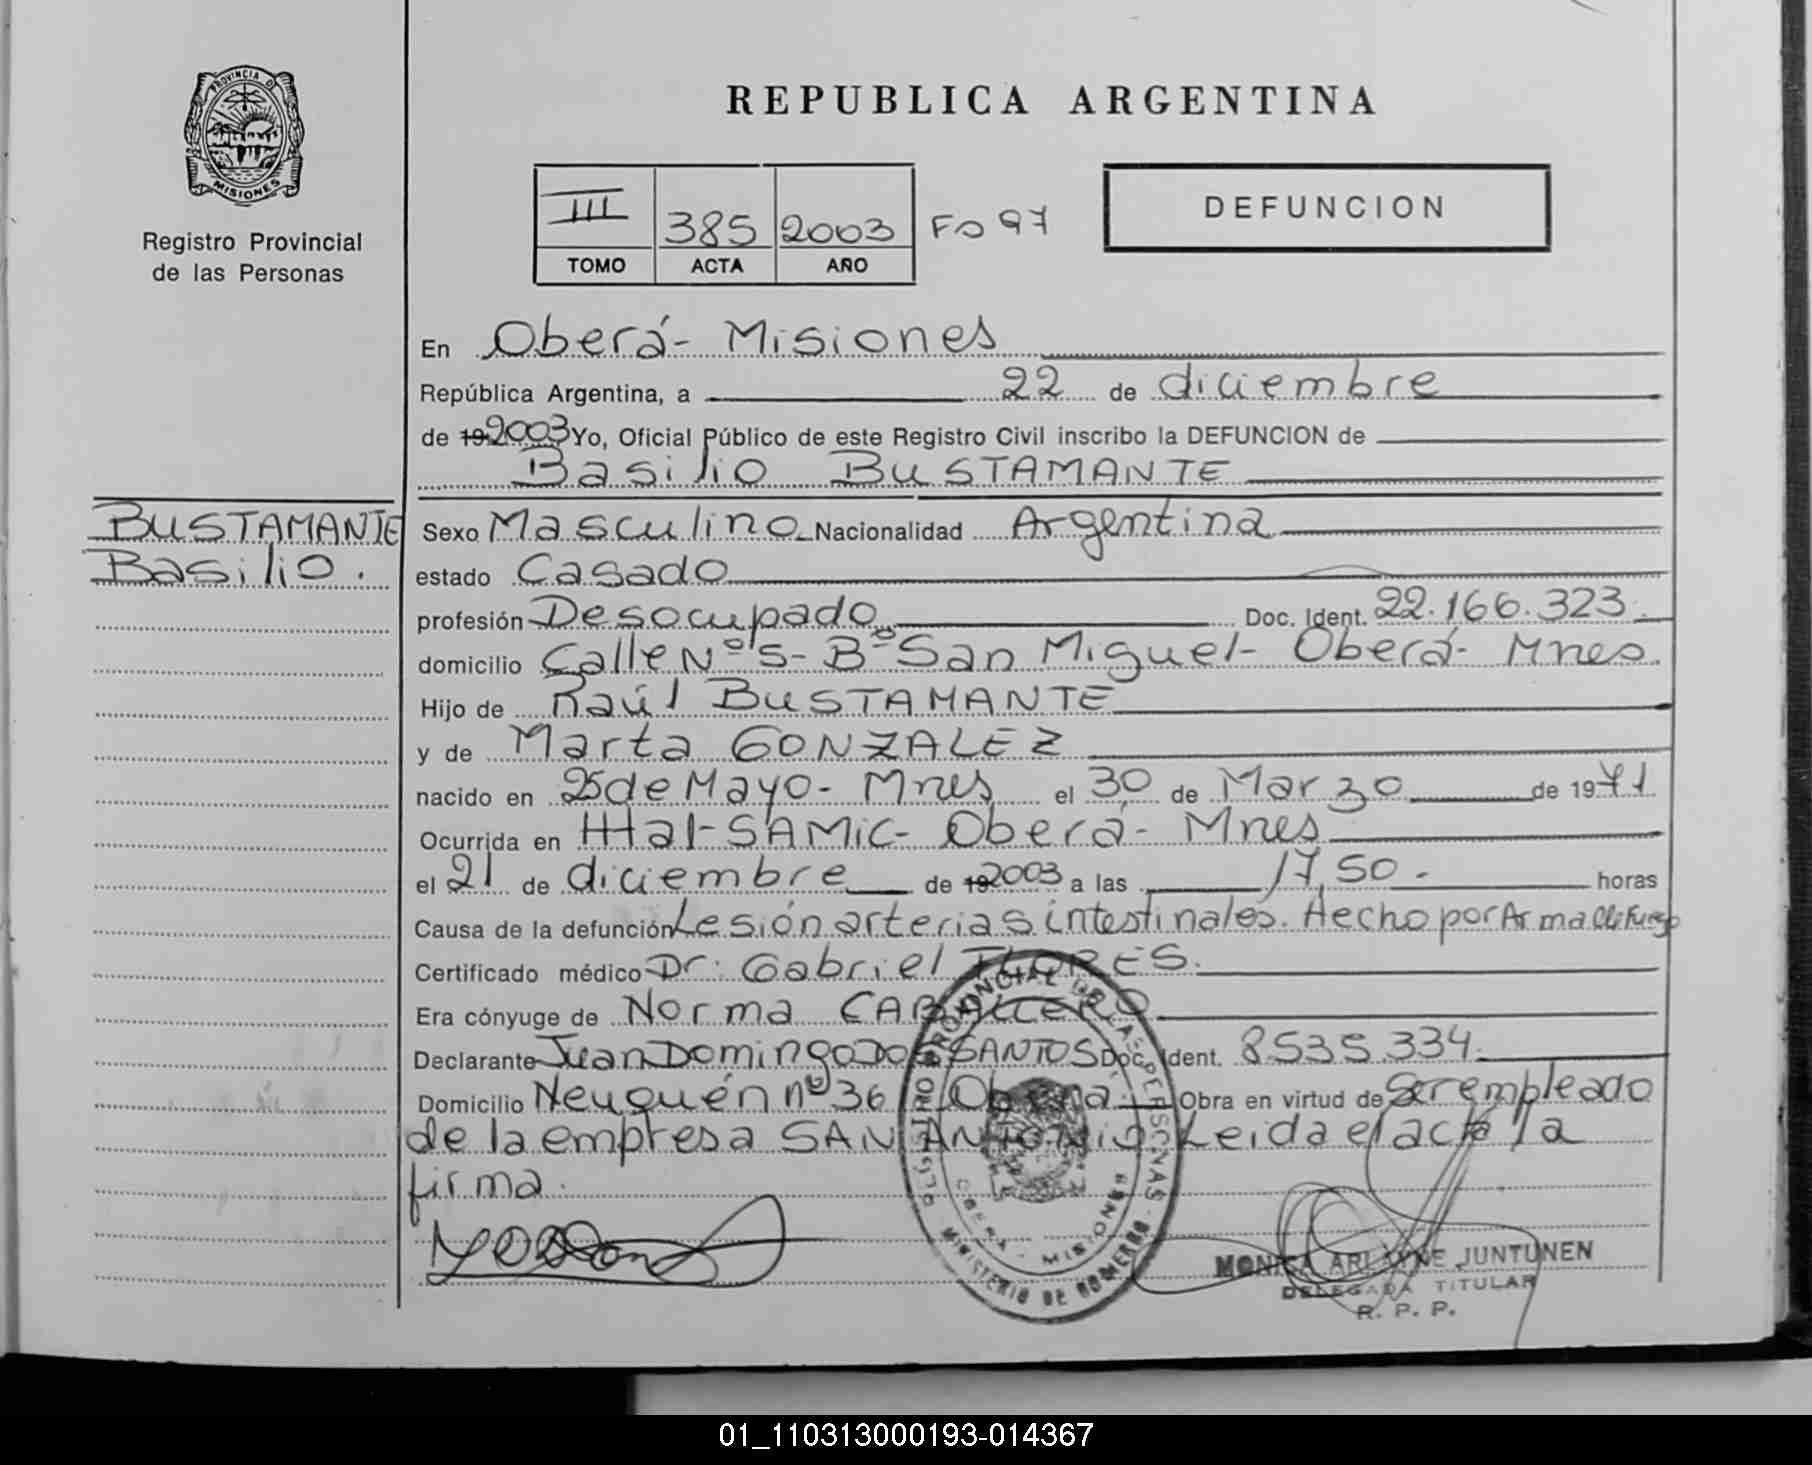 PROVINCIA DE
MISIONES
Registro Provincial
de las Personas
REPUBLICA ARGENTINA
III 385 2003 Fo 97
TOMO ACTA AÑO
DEFUNCION
En Oberá- Misiones
República Argentina, a 22 de diciembre
de 19 2003 Yo, Oficial Público de este Registro Civil inscribo la DEFUNCION de
Basilio BUSTAMANTE
BUSTAMANTE
Basilio.
Sexo Masculino Nacionalidad Argentina
estado Casado
profesión Desocupado Doc. Ident. 22.166.323.
domicilio Calle Nº 5- Bº San Miguel- Oberá- Mnes.
Hijo de Raúl BUSTAMANTE
y de Marta GONZALEZ
nacido en 25 de Mayo- Mnes el 30 de Marzo de 1971
Ocurrida en Htal-SAMIC- Oberá- Mnes
el 21 de diciembre de 19 2003 a las 17,50. horas
Causa de la defunción Lesión arterias intestinales. Hecho por Arma de Fuego
Certificado médico Dr: Gabriel FLORES.
Era cónyuge de Norma CABALLERO
Declarante Juan Domingo DOS SANTOS Doc. Ident. 8535.334.
Domicilio Neuquén nº 36 Oberá Obra en virtud de Ser empleado
de la empresa SAN ANTONIO Leida el acta la
firma.
REGISTRO PROVINCIAL DE LAS PERSONAS
OBERA - MISIONES
MINISTERIO DE GOBIERNO
MONICA ARLAYNE JUNTUNEN
DELEGADA TITULAR
R. P. P.
01_110313000193-014367